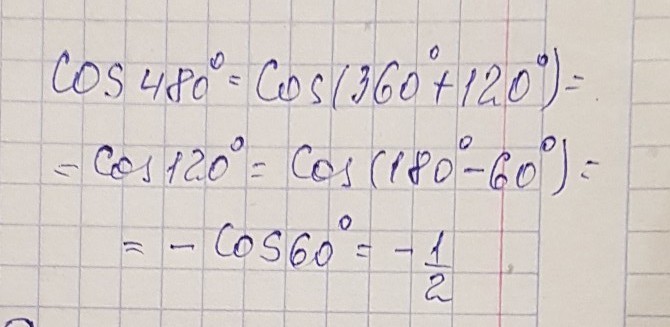 cos 480° = cos(360° + 120°) =
= cos 120° = cos(180° - 60°) =
= - cos 60° = - 1/2